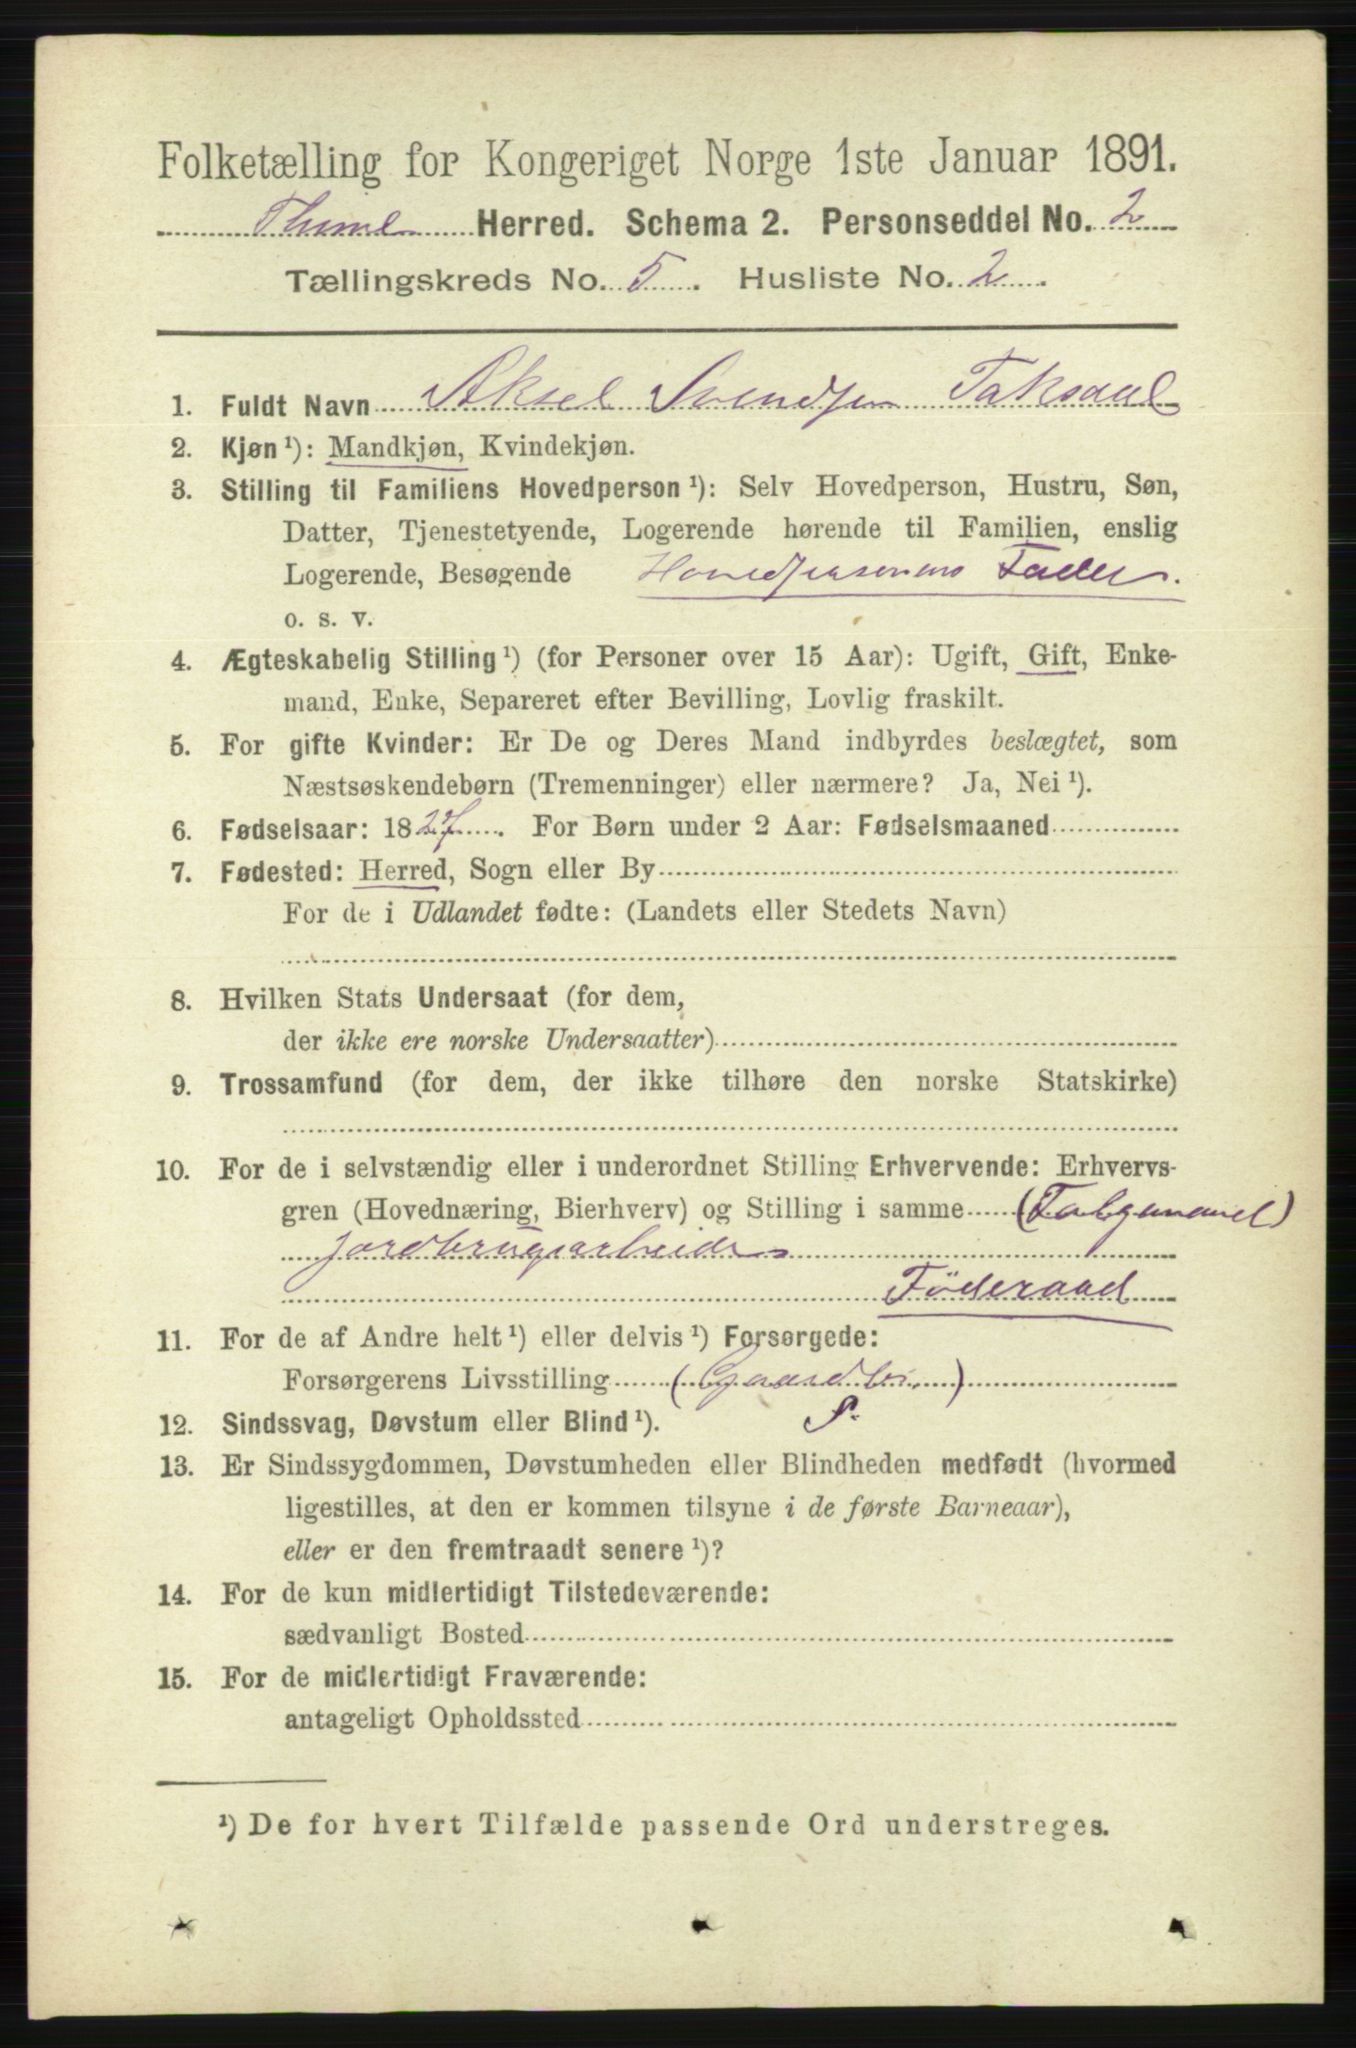 Folketælling for Kongeriget Norge 1ste Januar 1891.
Thime Herred. Schema 2. Personseddel No. 2
Tællingskreds No. 5. Husliste No. 2.
1. Fuldt Navn Aksel Svendsen Taksdal
2. Kjøn ¹): Mandkjøn, Kvindekjøn.
3. Stilling til Familiens Hovedperson ¹): Selv Hovedperson, Hustru, Søn,
Datter, Tjenestetyende, Logerende hørende til Familien, enslig
Logerende, Besøgende Hovedpersonens Fader.
o. s. v.
4. Ægteskabelig Stilling ¹) (for Personer over 15 Aar): Ugift, Gift, Enke-
mand, Enke, Separeret efter Bevilling, Lovlig fraskilt.
5. For gifte Kvinder: Er De og Deres Mand indbyrdes beslægtet, som
Næstsøskendebørn (Tremenninger) eller nærmere? Ja, Nei ¹).
6. Fødselsaar: 1827. For Børn under 2 Aar: Fødselsmaaned
7. Fødested: Herred, Sogn eller By
For de i Udlandet fødte: (Landets eller Stedets Navn)
8. Hvilken Stats Undersaat (for dem,
der ikke ere norske Undersaatter)
9. Trossamfund (for dem, der ikke tilhøre den norske Statskirke)
10. For de i selvstændig eller i underordnet Stilling Erhvervende: Erhvervs-
gren (Hovednæring, Bierhverv) og Stilling i samme
Jordbrugsarbeide
Föderaad
11. For de af Andre helt ¹) eller delvis ¹) Forsørgede:
Forsørgerens Livsstilling (Gaardbr.)
12. Sindssvag, Døvstum eller Blind ¹). S.
13. Er Sindssygdommen, Døvstumheden eller Blindheden medfødt (hvormed
ligestilles, at den er kommen tilsyne i de første Barneaar),
eller er den fremtraadt senere ¹)?
14. For de kun midlertidigt Tilstedeværende:
sædvanligt Bosted
15. For de midlertidigt Fraværende:
antageligt Opholdssted
¹) De for hvert Tilfælde passende Ord understreges.